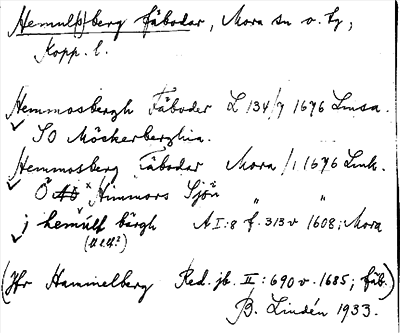 Hemul(s)berg fäbodar, Mora sn o. tg,
Kopp. l.
Hemmosbergh Fäboder L 134/7 1676 Lmsa.
SO Möckerberghia.
Hemmosberg Fäbodar Mora /1 1676 Lmk.
Ö Himmors Sjön " "
j hemúlf bärgh A I:8 f. 313 v 1608; Mora
(Jfr Hammelberg Red. jb. II: 690 v. 1685; fäb.)
B. Lindén 1933.